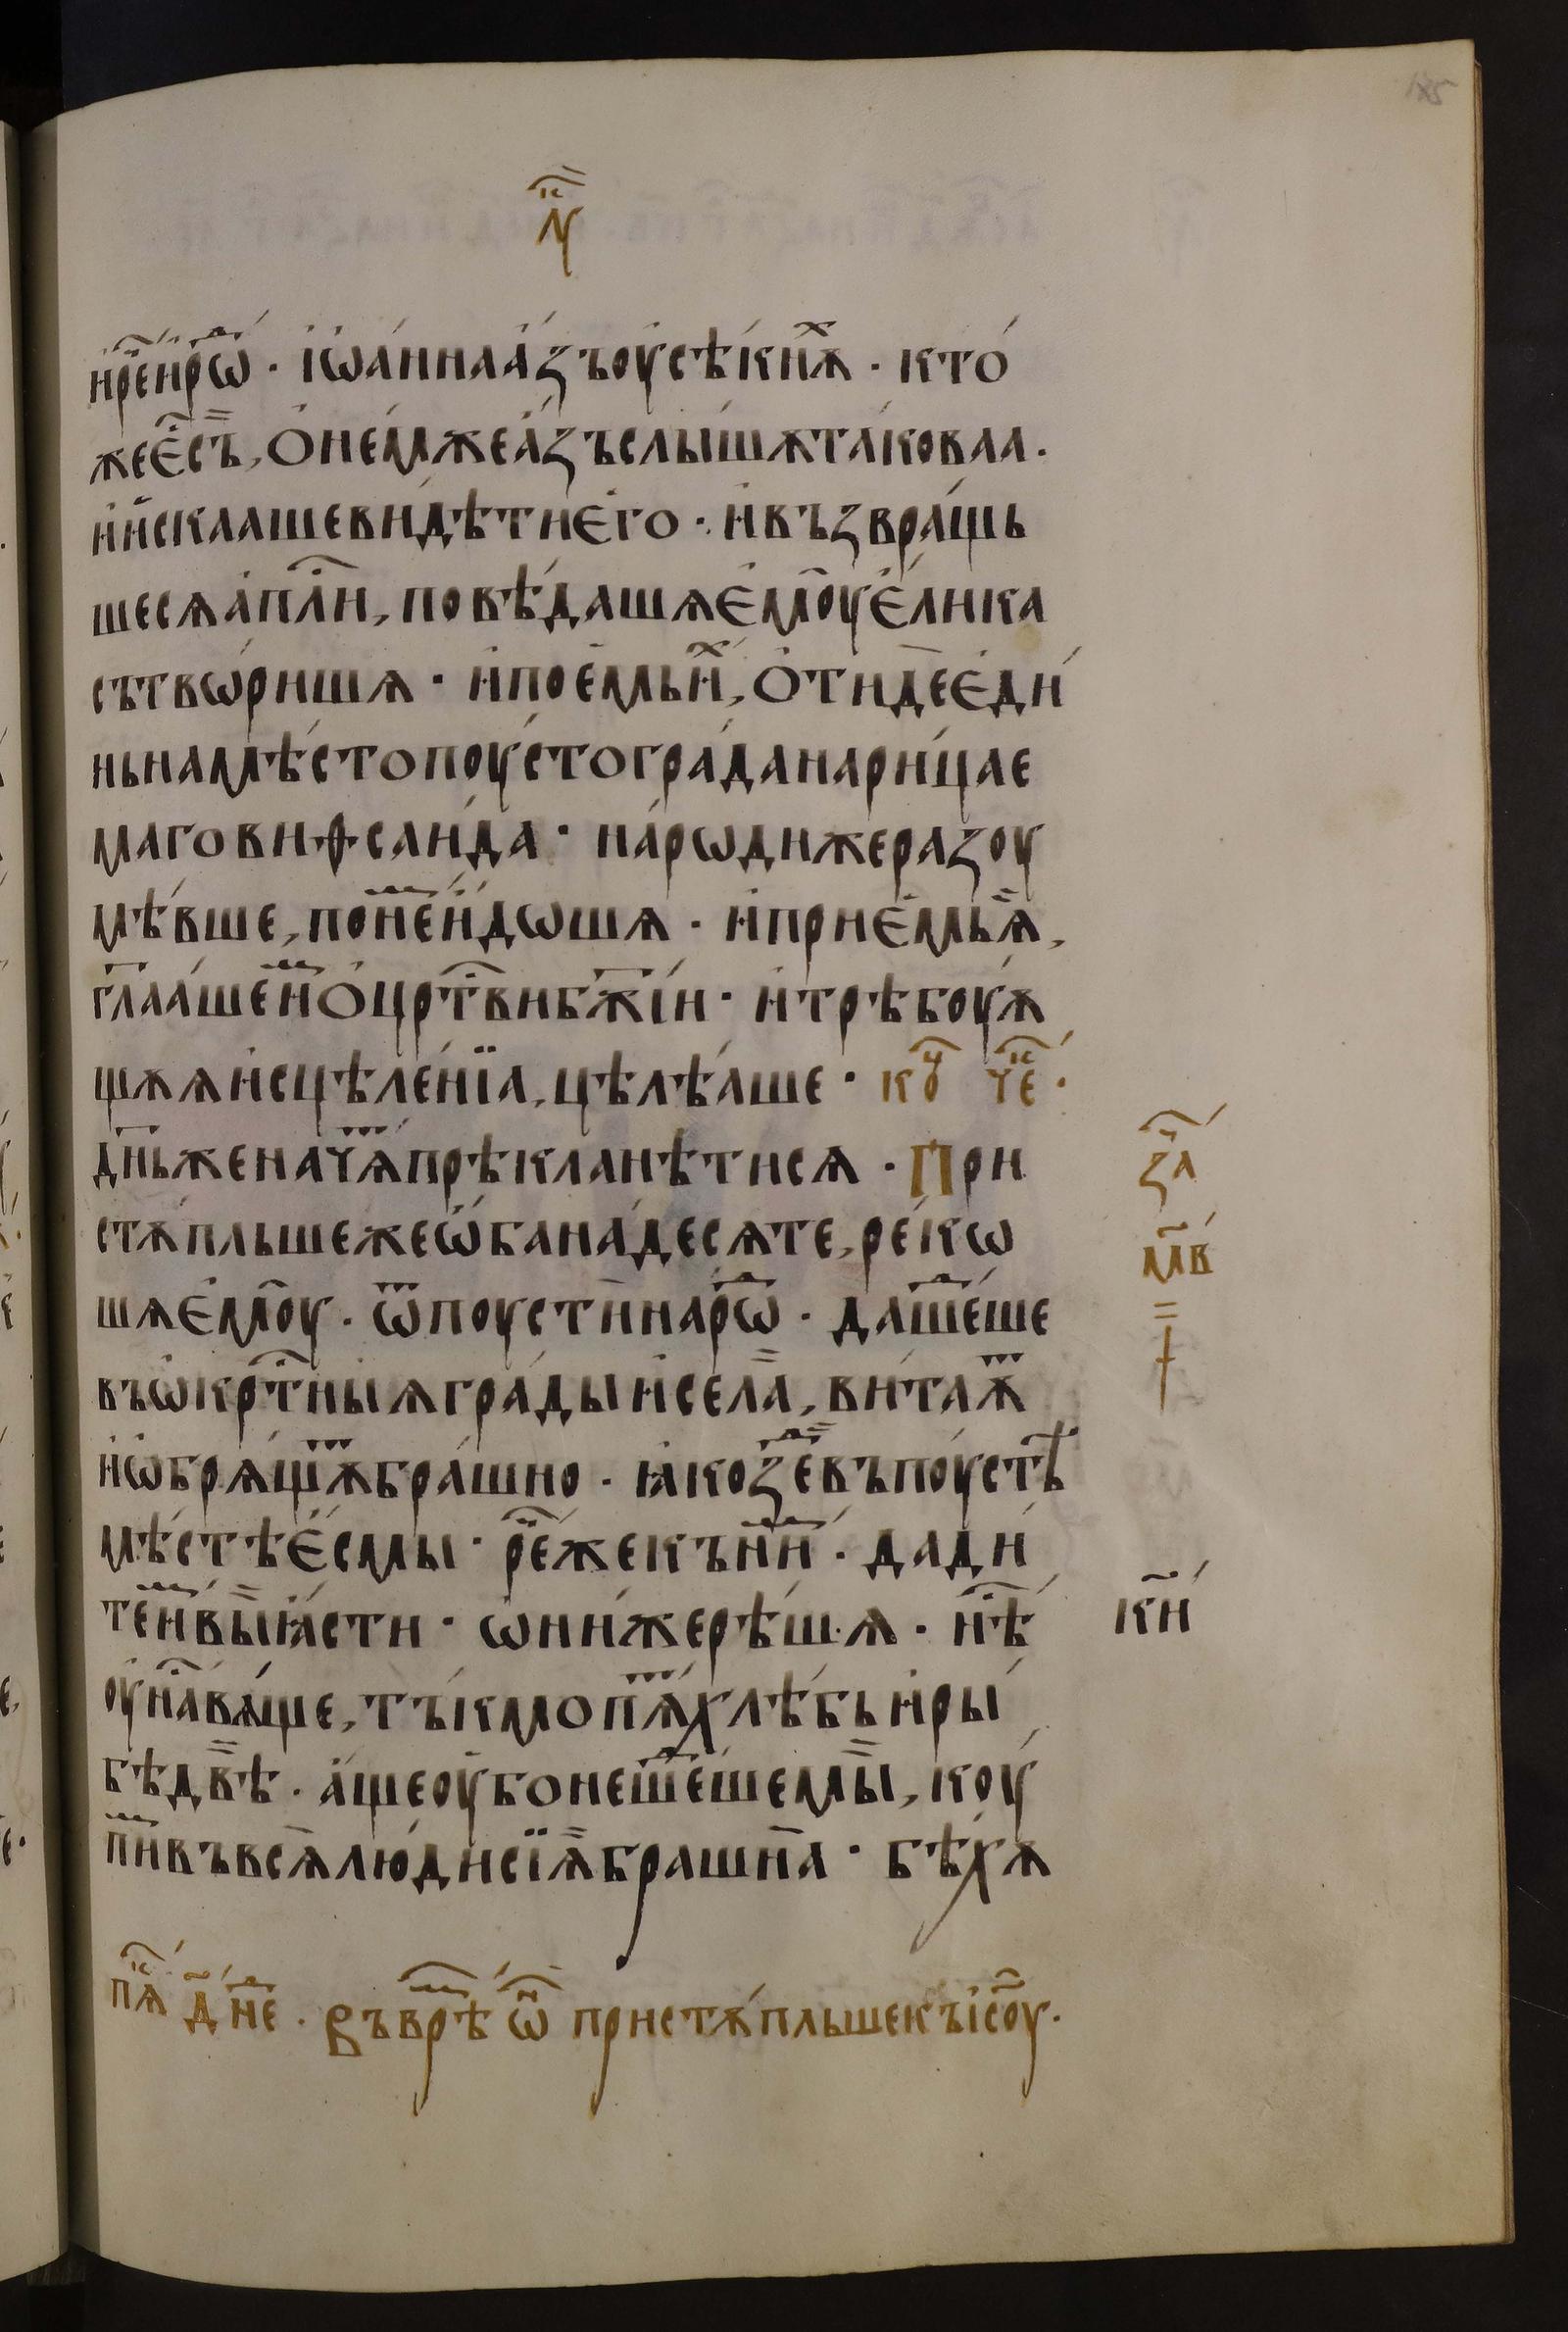 лꙋ
и҆ рече и҆рѡ · і҆ѡа́нна а҆́зъ оу҆сѣ́кнѫх · кто́
же е҆с̾ъ, ѻ҆ не́мже а҆́зъ слы́шѫ така́коваа ·
и҆ и҆ска́аше ви́дѣти є҆го · и҆ възвра́щь
шесѧ а҆пⷭ҇ли, повѣ́дашѧ є҆моу є҆́лика
сътвѡ́ришѧ · и҆ пое́мь иⷯ, ѻ҆ти́де є҆ди́
нь на мѣ́сто поу́сто гра́да нарица́е
маго виѳсаи́да · наро́ди же разоу
мѣ́вше, по не́мь и҆дѡшѧ · и҆ прие́мь ѧ,
гл҃ааше и҆мь ѻ҆ црⷭ҇тви бж҃їи · и҆ трѣбоуѫ
щѫѧ и҆сцѣле́нїа, цѣлѣ́аше · коⷰ҇ чеⷦ҇ ·
дн҃ь же начѧⷮ прѣкланѣ́тисѧ · При
стѫ́пльше же ѻ҆ба на́десѧте, ре́кѡ
шѧ є҆моу · ѿпоусти наро́ды · да ше́дше
въ ѡ҆крⷭ҇тныѧ гра́ды и҆ се́ла, вита́ѫⷮ
и҆ ѡ҆брѧ́щѫⷮ бра́шно · ꙗ҆ко зде въ поу́стѣ
мѣ́стѣ є҆смы · рече же къ ни́мь · дади́
те и҆мь вы ꙗ҆́сти · ѡ҆ни́ же рѣ́шѧ · нⷭ҇ѣ
оу҆ на́с вѧ́ще, тъ́кмо пѧⷮ хлѣ́бь и҆ ры́
бѣ двѣ · а҆́ще оу҆бо не ше́дше мы́, коу́
пимь въ всѧ лю́ди сїѧ бра́шна · бѣ́хѫ
зⷱ҇а
мв҃
†
ки҃
пѧⷦ҇ д҃ не́д · Въ врѣмѧ ѡ҆но пристѫ́пльше къ і҆соу ·